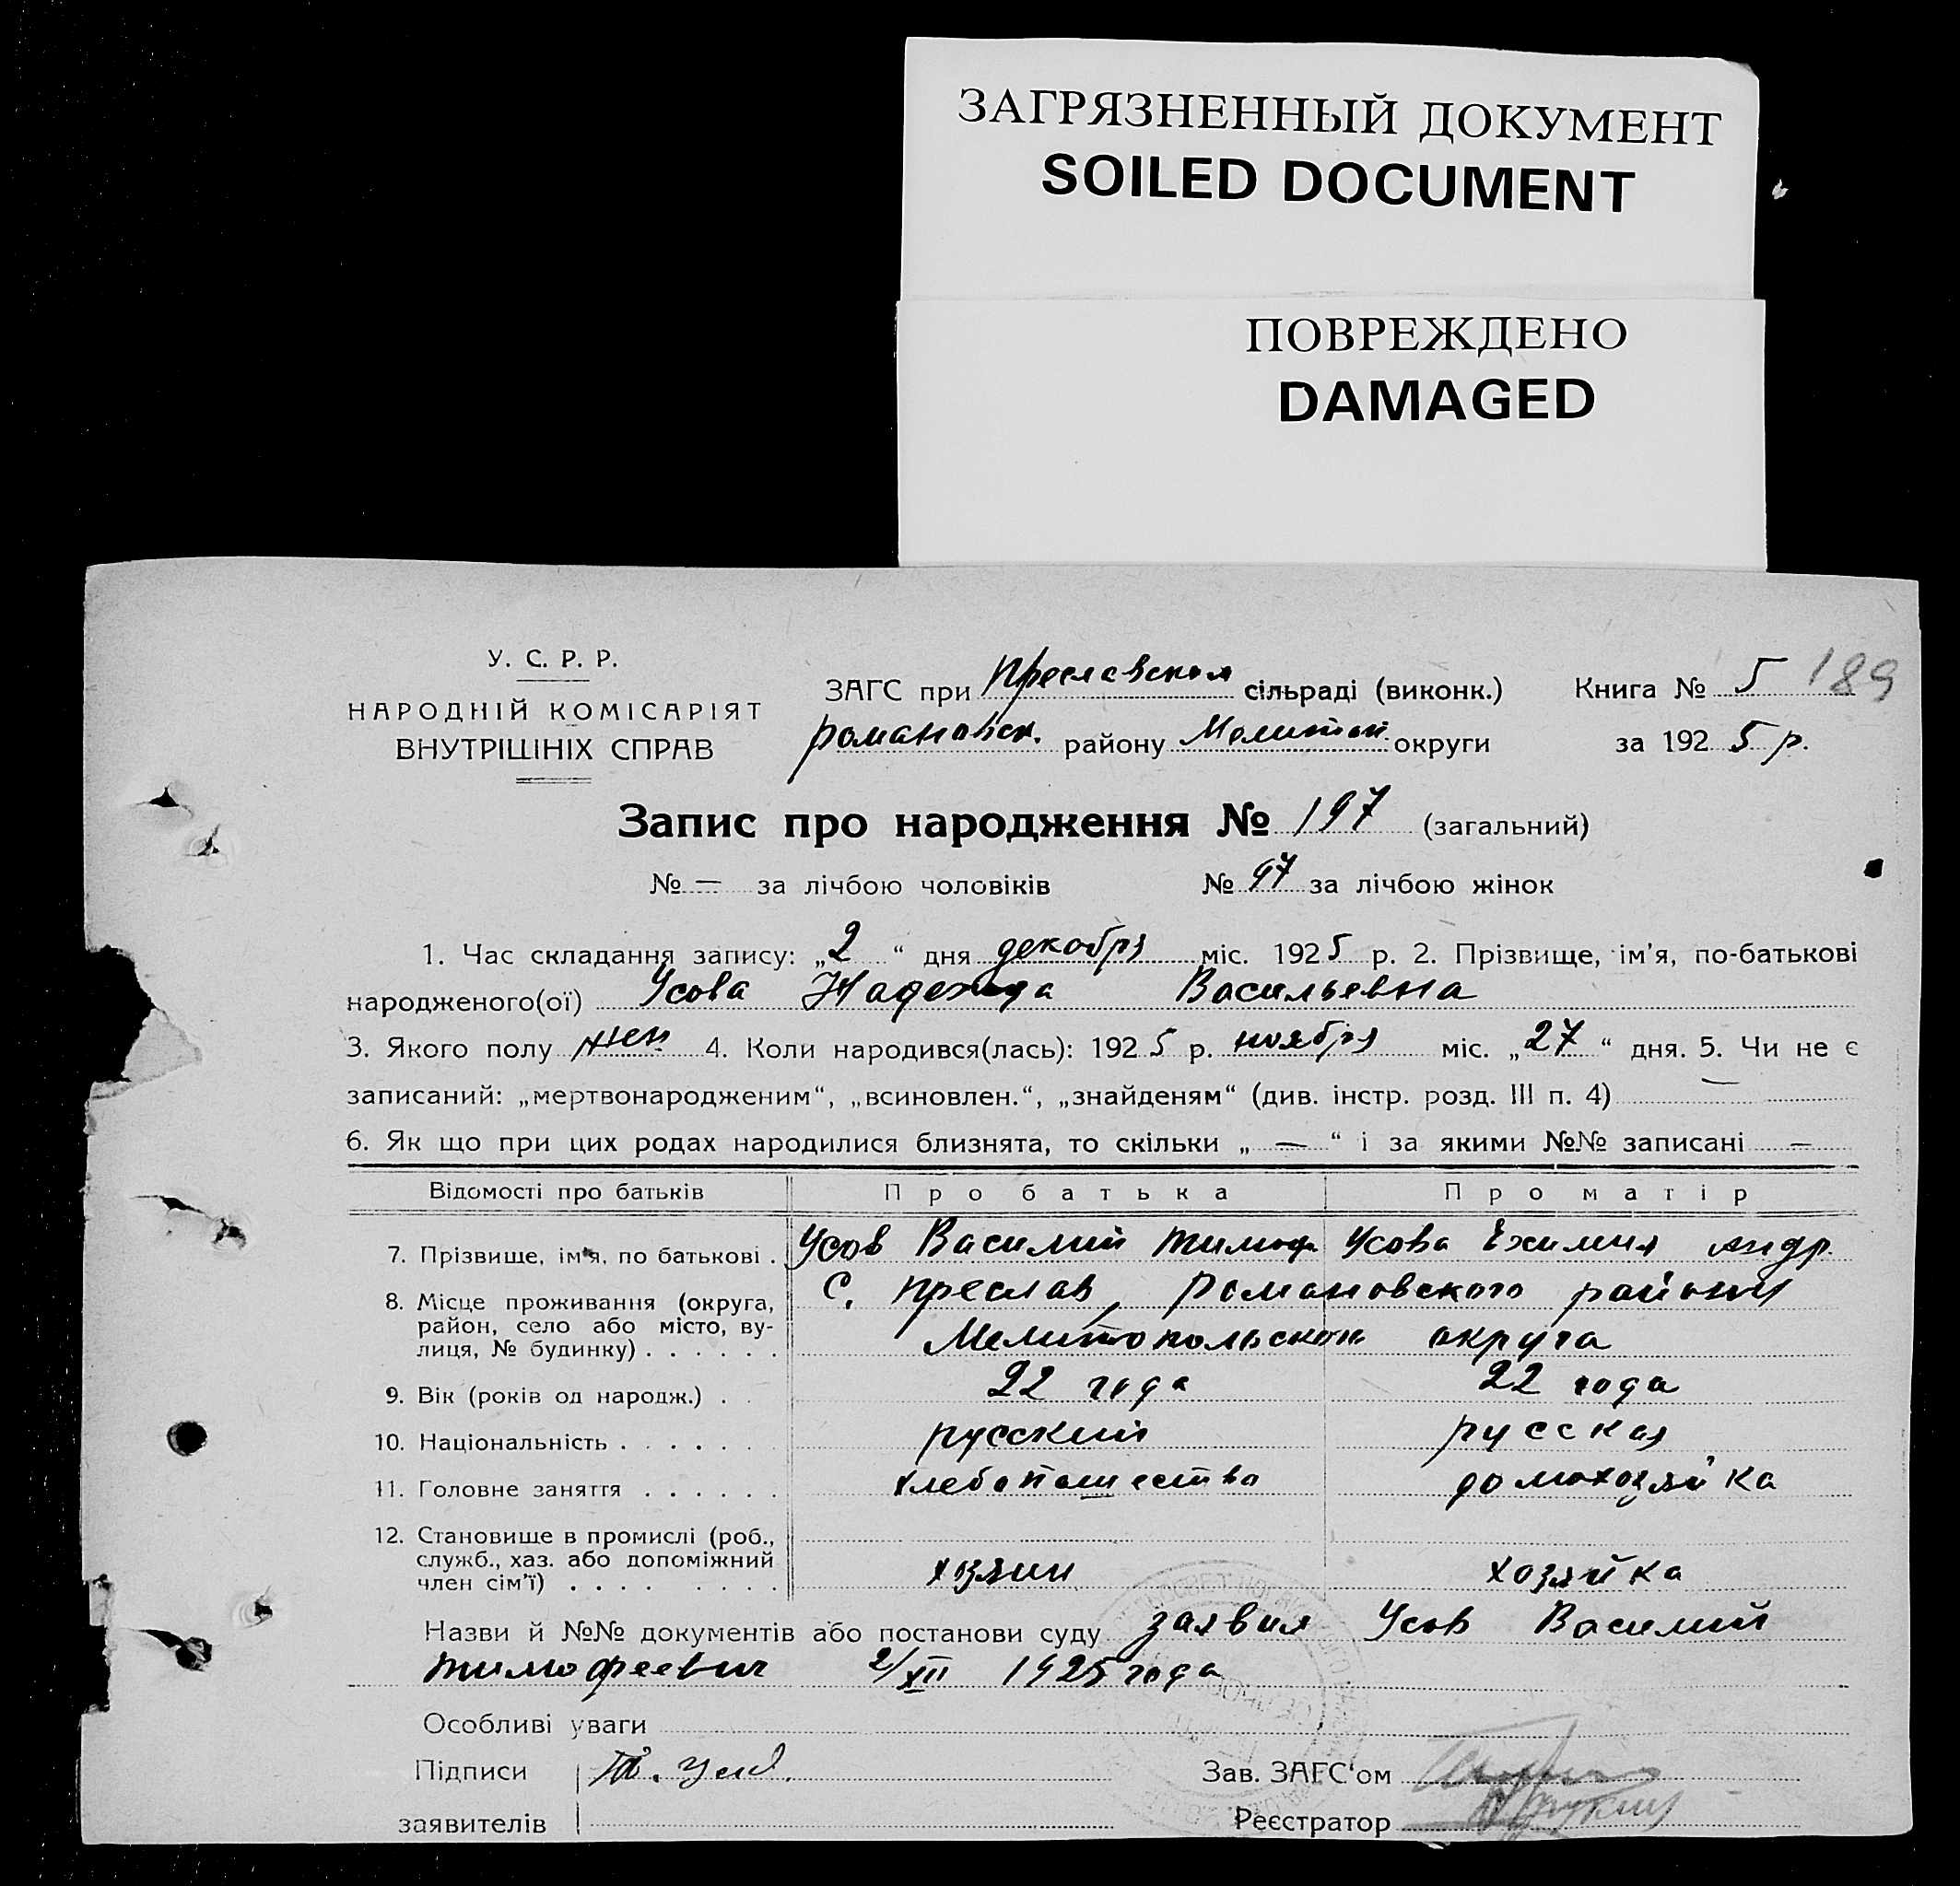 ЗАГРЯЗНЕННЫЙ ДОКУМЕНТ
SOILED DOCUMENT
ПОВРЕЖДЕНО
DAMAGED
У. С. Р. Р.
НАРОДНІЙ КОМІСАРІЯТ
ВНУТРІШНІХ СПРАВ
ЗАГС при Преславском сільраді (виконк.) Книга № 5 189
Романовск. району Мелитоп. округи за 1925 р.
Запис про народження № 197 (загальний)
№ — за лічбою чоловіків № 97 за лічбою жінок
1. Час складання запису: „2“ дня декабря міс. 1925 р. 2. Прізвище, ім'я, по-батькові
народженого(ої) Усова Надежда Васильевна
3. Якого полу жен. 4. Коли народився(лась): 1925 р. ноября міс. „27“ дня. 5. Чи не є
записаний: „мертвонародженим“, „всиновлен.“, „знайденям“ (див. інстр. розд. III п. 4) —
6. Як що при цих родах народилися близнята, то скільки „ — “ і за якими №№ записані —
Відомості про батьків Про батька Про матір
7. Прізвище, ім'я, по батькові . Усов Василий Тимоф. Усова Ехимия Андр.
8. Місце проживання (округа, район, село або місто, вулиця, № будинку) . . . . . . С. Преслав, Романовского района
Мелитопольской округа
9. Вік (років од народж.) . . 22 года 22 года
10. Національність . . . . . . . русский русская
11. Головне заняття . . . . . . хлебопашество домохозяйка
12. Становище в промислі (роб.,
служб., хаз. або допоміжний
член сім'ї) . . . . . . . . хозяин хозяйка
Назви й №№ документів або постанови суду заявил Усов Василий
Тимофеевич 2/XII 1925 года
Особливі уваги
Підписи В. Усов. Зав. ЗАГС'ом
заявителів Реєстратор